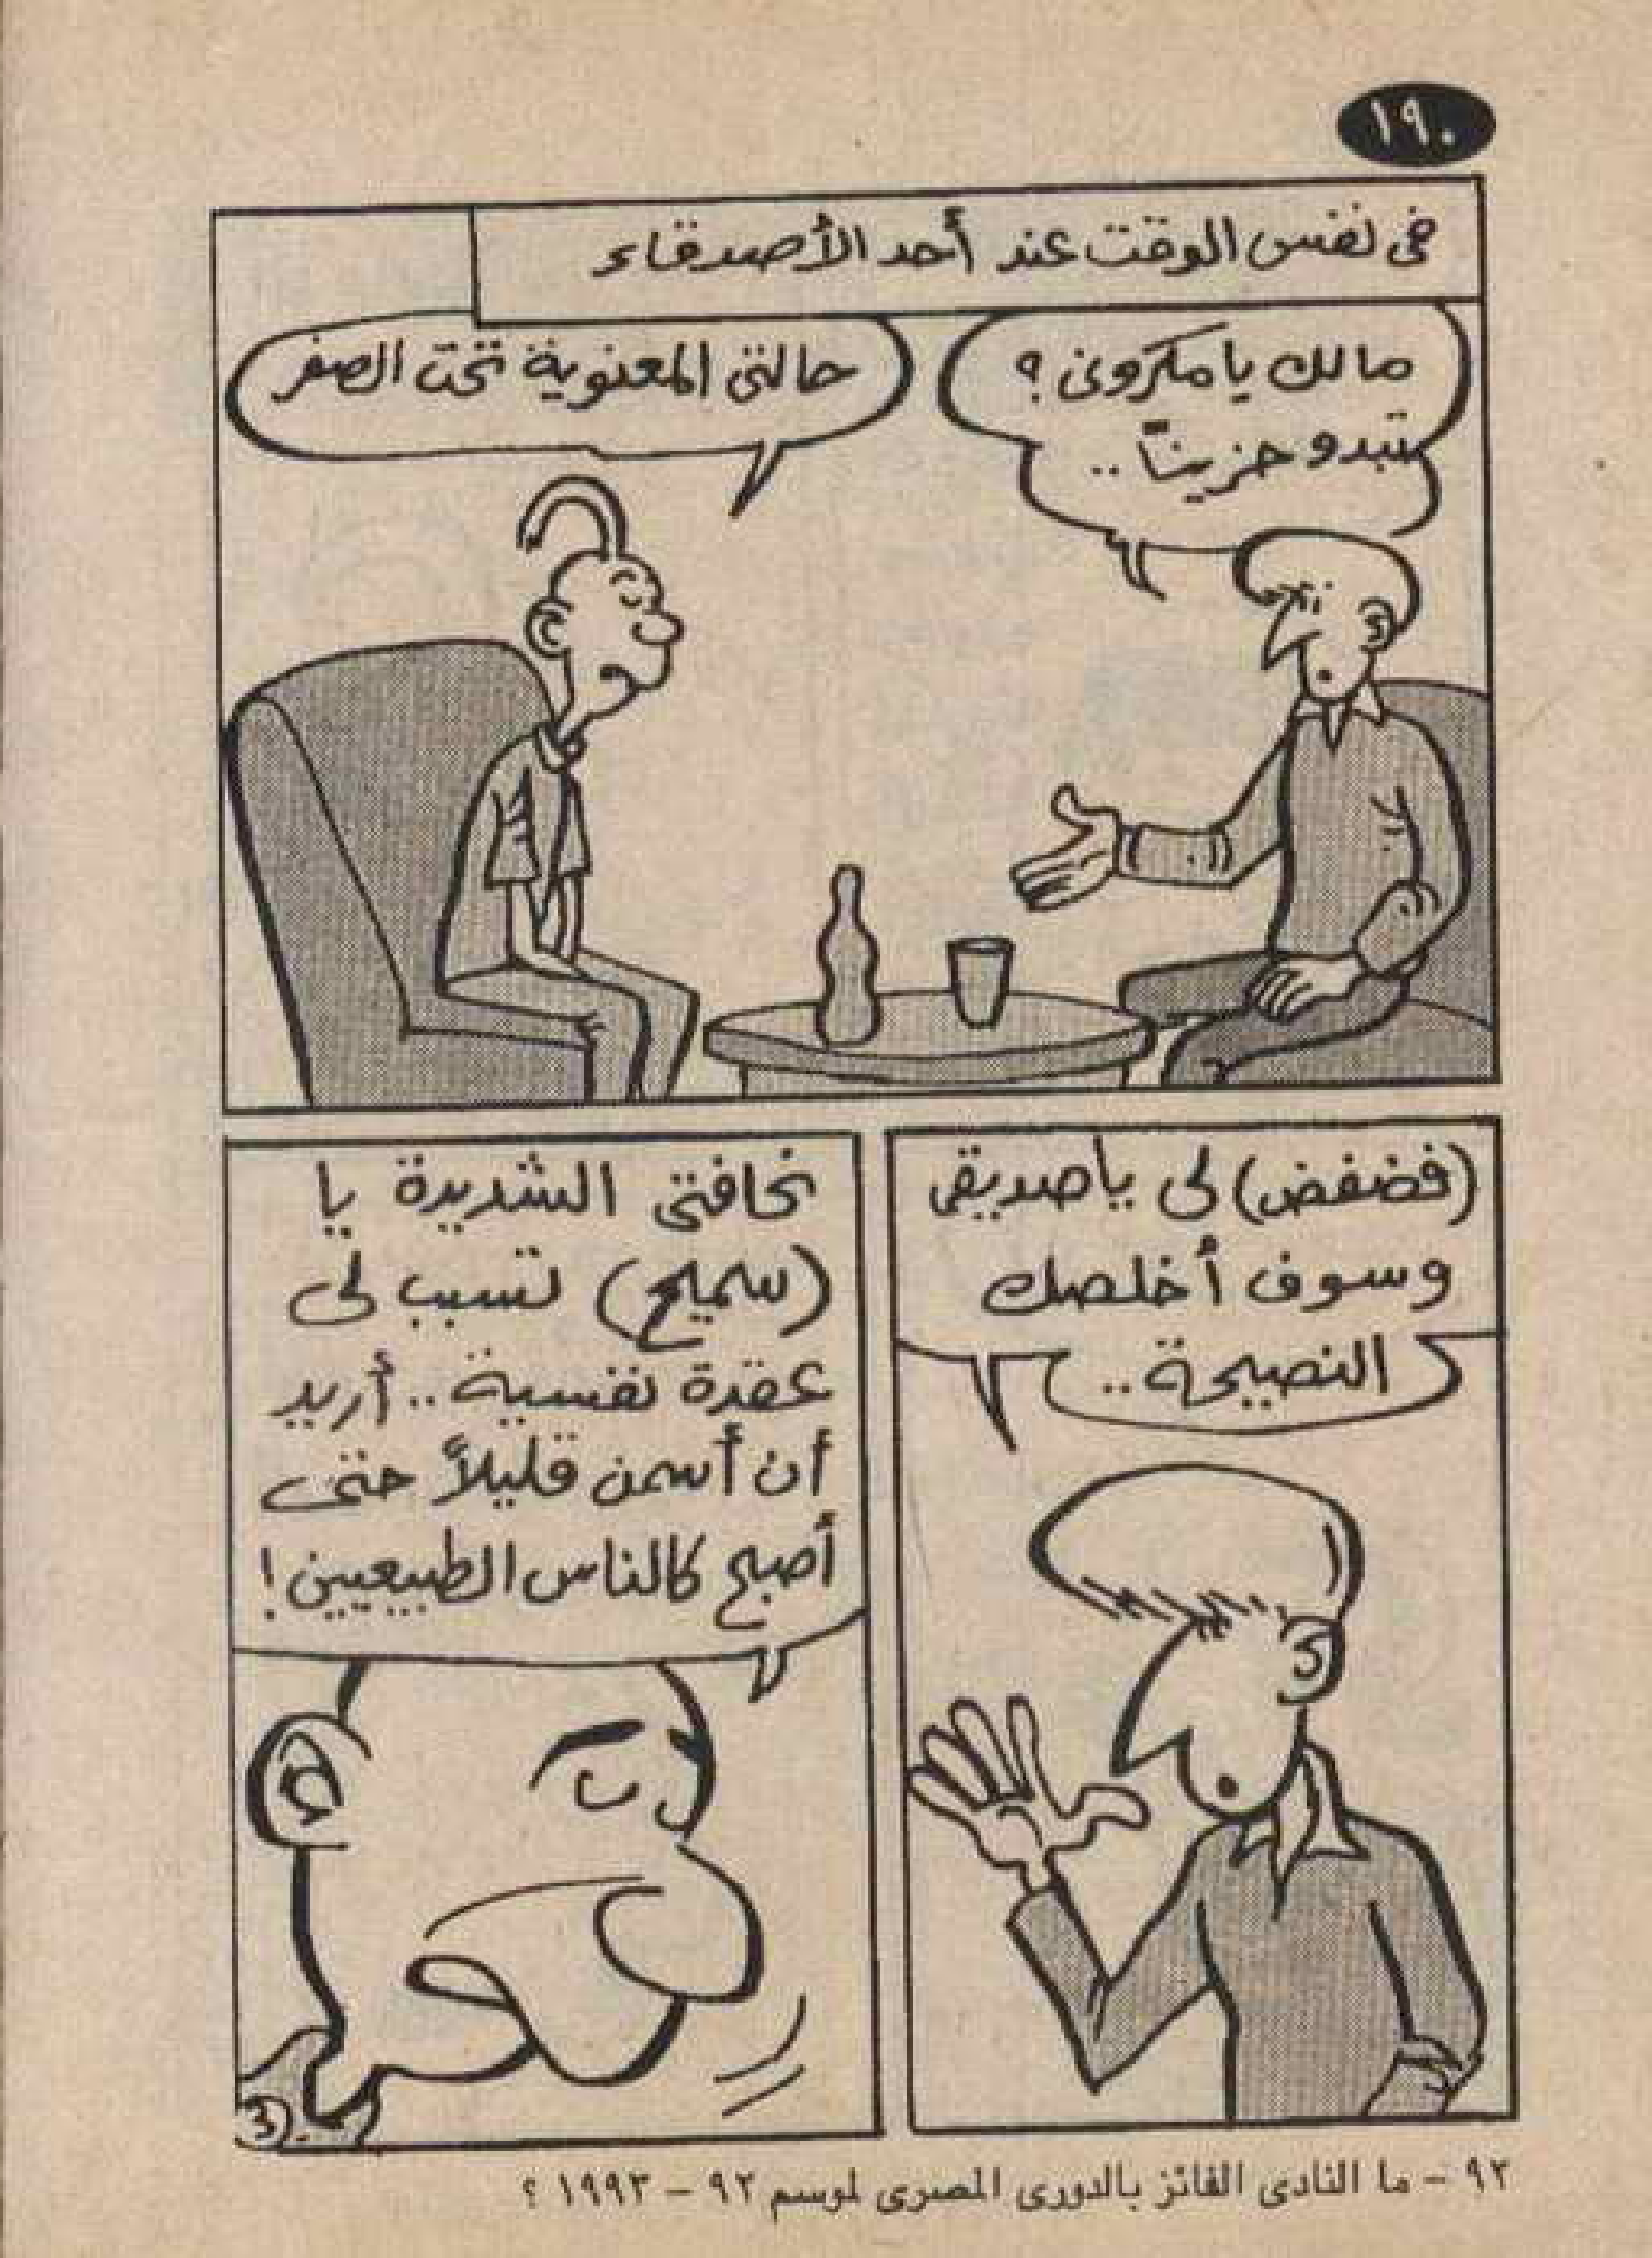 ١٩٠
فى نفس الوقت عند أحد الأصدقاء
مالك يا مكرونى ؟
تبدو حزيناً ..
حالتى المعنوية تحت الصفر
(فضفض) لى يا صديقى
وسوف أخلصك
النصيحة ..
نحافتى الشديدة يا
(سميح) تسبب لى
عقدة نفسية .. أريد
أن أسمن قليلاً حتى
أصبح كالناس الطبيعيين !
٩٢ - ما النادى الفائز بالدورى المصرى لموسم ٩٢ - ١٩٩٣ ؟